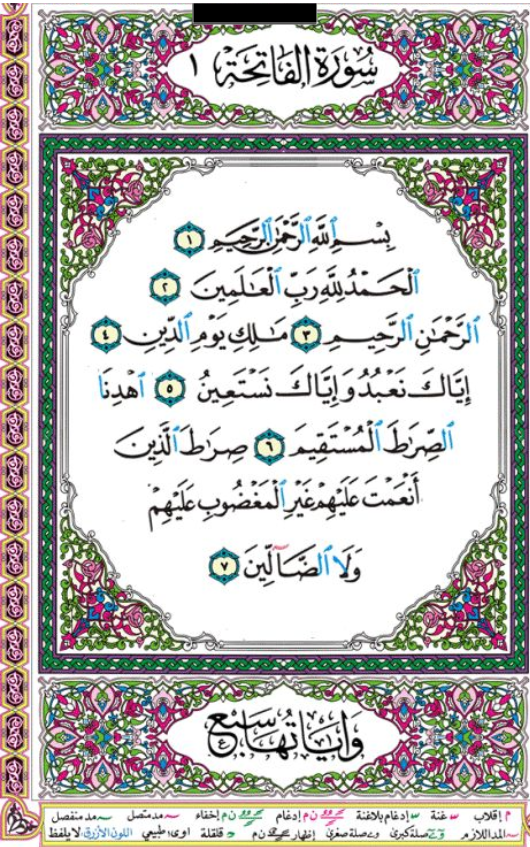 سُورَةُ الفَاتِحَةِ ١
بِسْمِ ٱللَّهِ ٱلرَّحْمَٰنِ ٱلرَّحِيمِ ١
ٱلْحَمْدُ لِلَّهِ رَبِّ ٱلْعَٰلَمِينَ ٢
ٱلرَّحْمَٰنِ ٱلرَّحِيمِ ٣ مَٰلِكِ يَوْمِ ٱلدِّينِ ٤
إِيَّاكَ نَعْبُدُ وَإِيَّاكَ نَسْتَعِينُ ٥ ٱهْدِنَا
ٱلصِّرَٰطَ ٱلْمُسْتَقِيمَ ٦ صِرَٰطَ ٱلَّذِينَ
أَنْعَمْتَ عَلَيْهِمْ غَيْرِ ٱلْمَغْضُوبِ عَلَيْهِمْ
وَلَا ٱلضَّآلِّينَ ٧
وَآيَاتُهَا سَبْعٌ
م إقلاب غنة إدغام بلاغنة ن م إدغام ن م إخفاء مد متصل مد منفصل
المد اللازم صلة كبرى صلة صغرى إظهار ن م قلقلة اوى؛ طبيعي اللون الأزرق لا يلفظ